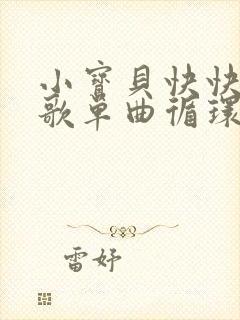 小寶貝快快
歌单曲循環
雷妤